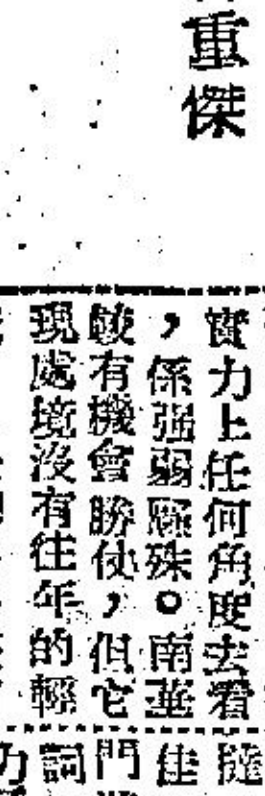 重傑
實力上任何角度去看
，係强弱懸殊。南華
較有機會勝仗，但它
現處境沒有往年的輕
隨
佳
門
詞